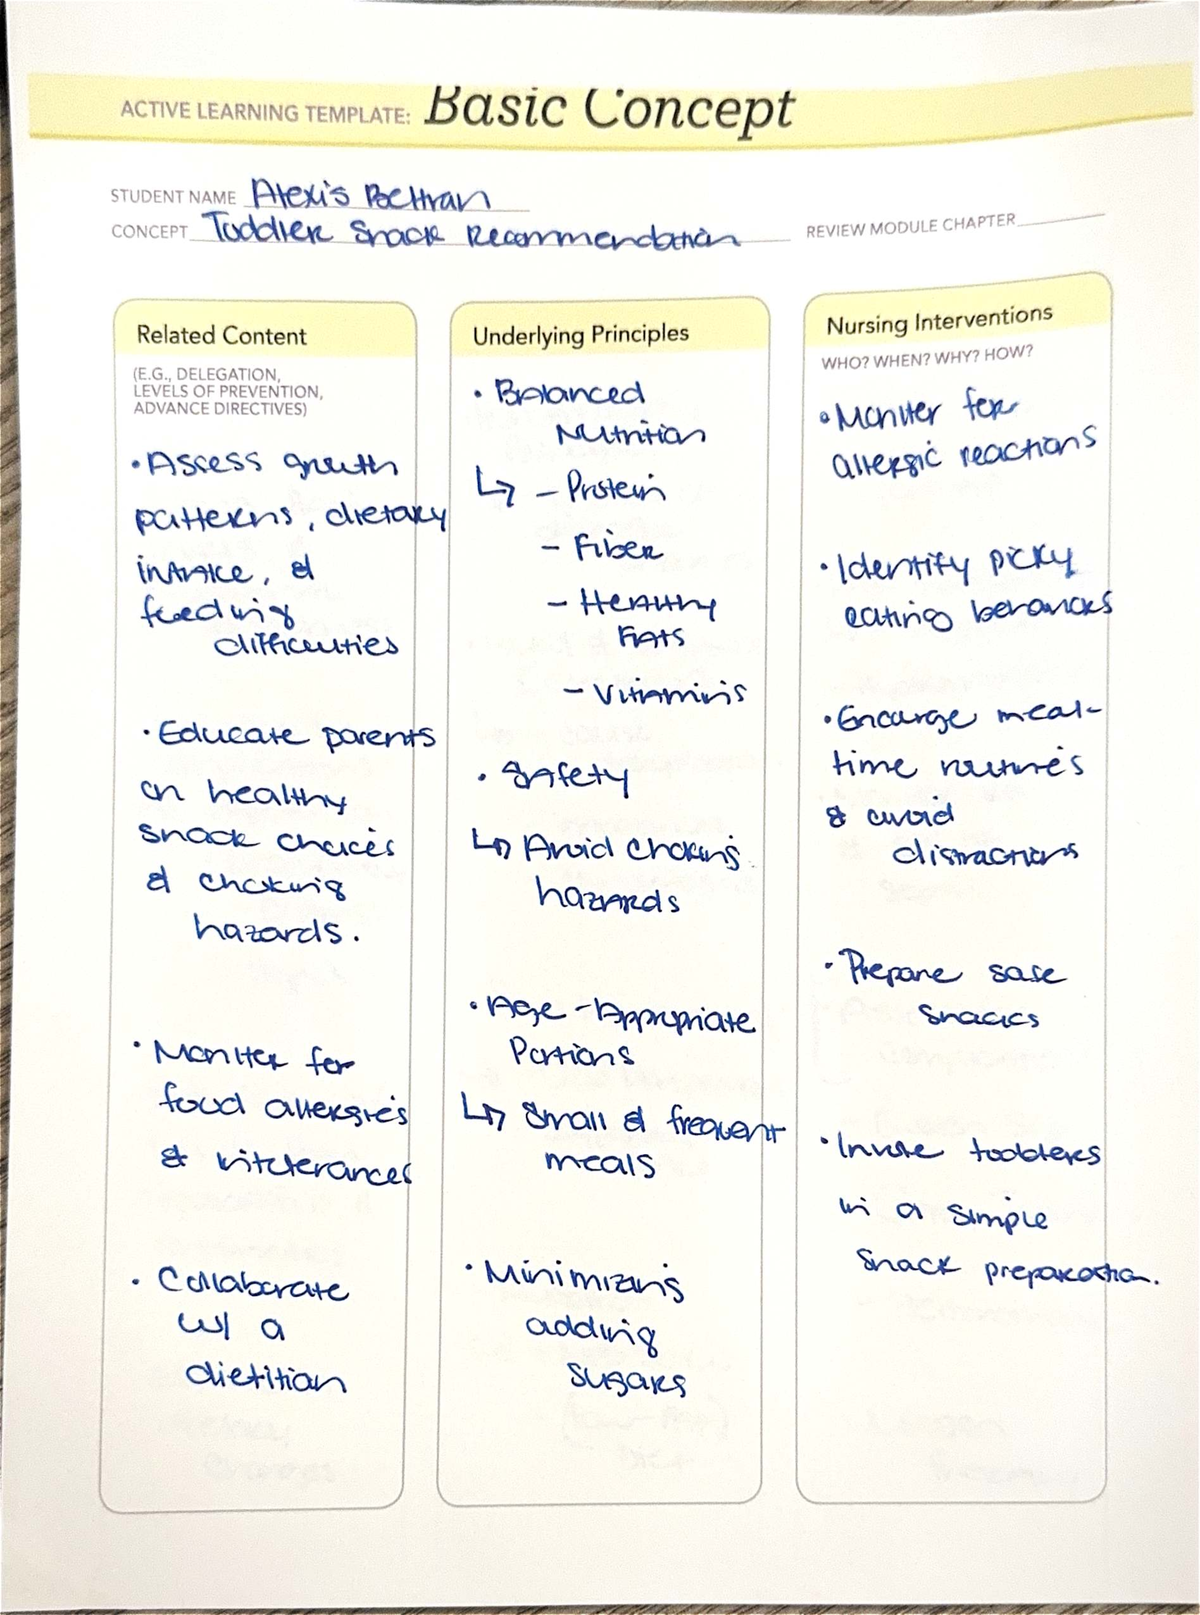 ACTIVE LEARNING TEMPLATE: Basic Concept
STUDENT NAME Alexis Beltran
CONCEPT Toddler Snack Recommendation
REVIEW MODULE CHAPTER
Related Content
(E.G., DELEGATION,
LEVELS OF PREVENTION,
ADVANCE DIRECTIVES)
• Assess growth
patterns, dietary
intake, &
feeding
difficulties
• Educate parents
on healthy
snack choices
& choking
hazards.
• Moniter for
food allergies
& intolerances
• Collaborate
w/ a
dietitian
Underlying Principles
• Balanced
Nutrition
↳ - Protein
- Fiber
- Healthy
Fats
- Vitamins
• Safety
↳ Avoid Choking
hazards
• Age-Appropriate
Portions
↳ Small & frequent
meals
• Minimizing
adding
sugars
Nursing Interventions
WHO? WHEN? WHY? HOW?
• Moniter for
allergic reactions
• Identify picky
eating behaviors
• Encarge meal-
time routines
& avoid
distractions
• Prepare safe
snacks
• Involve toddlers
in a simple
snack preparation.